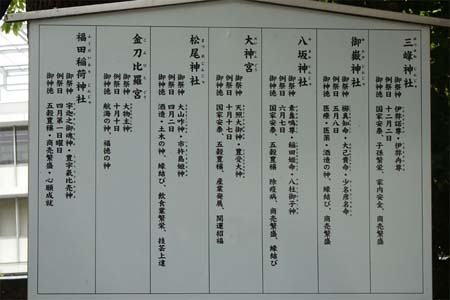 三峰神社
御祭神 伊弉諾尊・伊弉冉尊
例祭日 十二月二日
御神徳 国家安泰、子孫繁栄、家内安全、商売繁盛
御嶽神社
御祭神 櫛真知命・大己貴命・少名彦名命
例祭日 五月八日
御神徳 医療・医薬・酒造の神、縁結び、商売繁盛
八坂神社
御祭神 素盞嗚尊・稲田姫命・八柱御子神
例祭日 六月七日
御神徳 国家安泰、五穀豊穣、除疫病、商売繁盛、縁結び
大神宮
御祭神 天照大御神・豊受大神
例祭日 十月十七日
御神徳 国家安泰、五穀豊穣、産業発展、開運招福
松尾神社
御祭神 大山咋神・市杵島姫神
例祭日 四月二日
御神徳 酒造・土木の神、縁結び、飲食業繁栄、技芸上達
金刀比羅宮
御祭神 大物主神
例祭日 十月十日
御神徳 航海の神、福徳の神
福田稲荷神社
御祭神 宇迦之御魂神・豊宇気比売神
例祭日 四月第一日曜日
御神徳 五穀豊穣・商売繁盛・心願成就